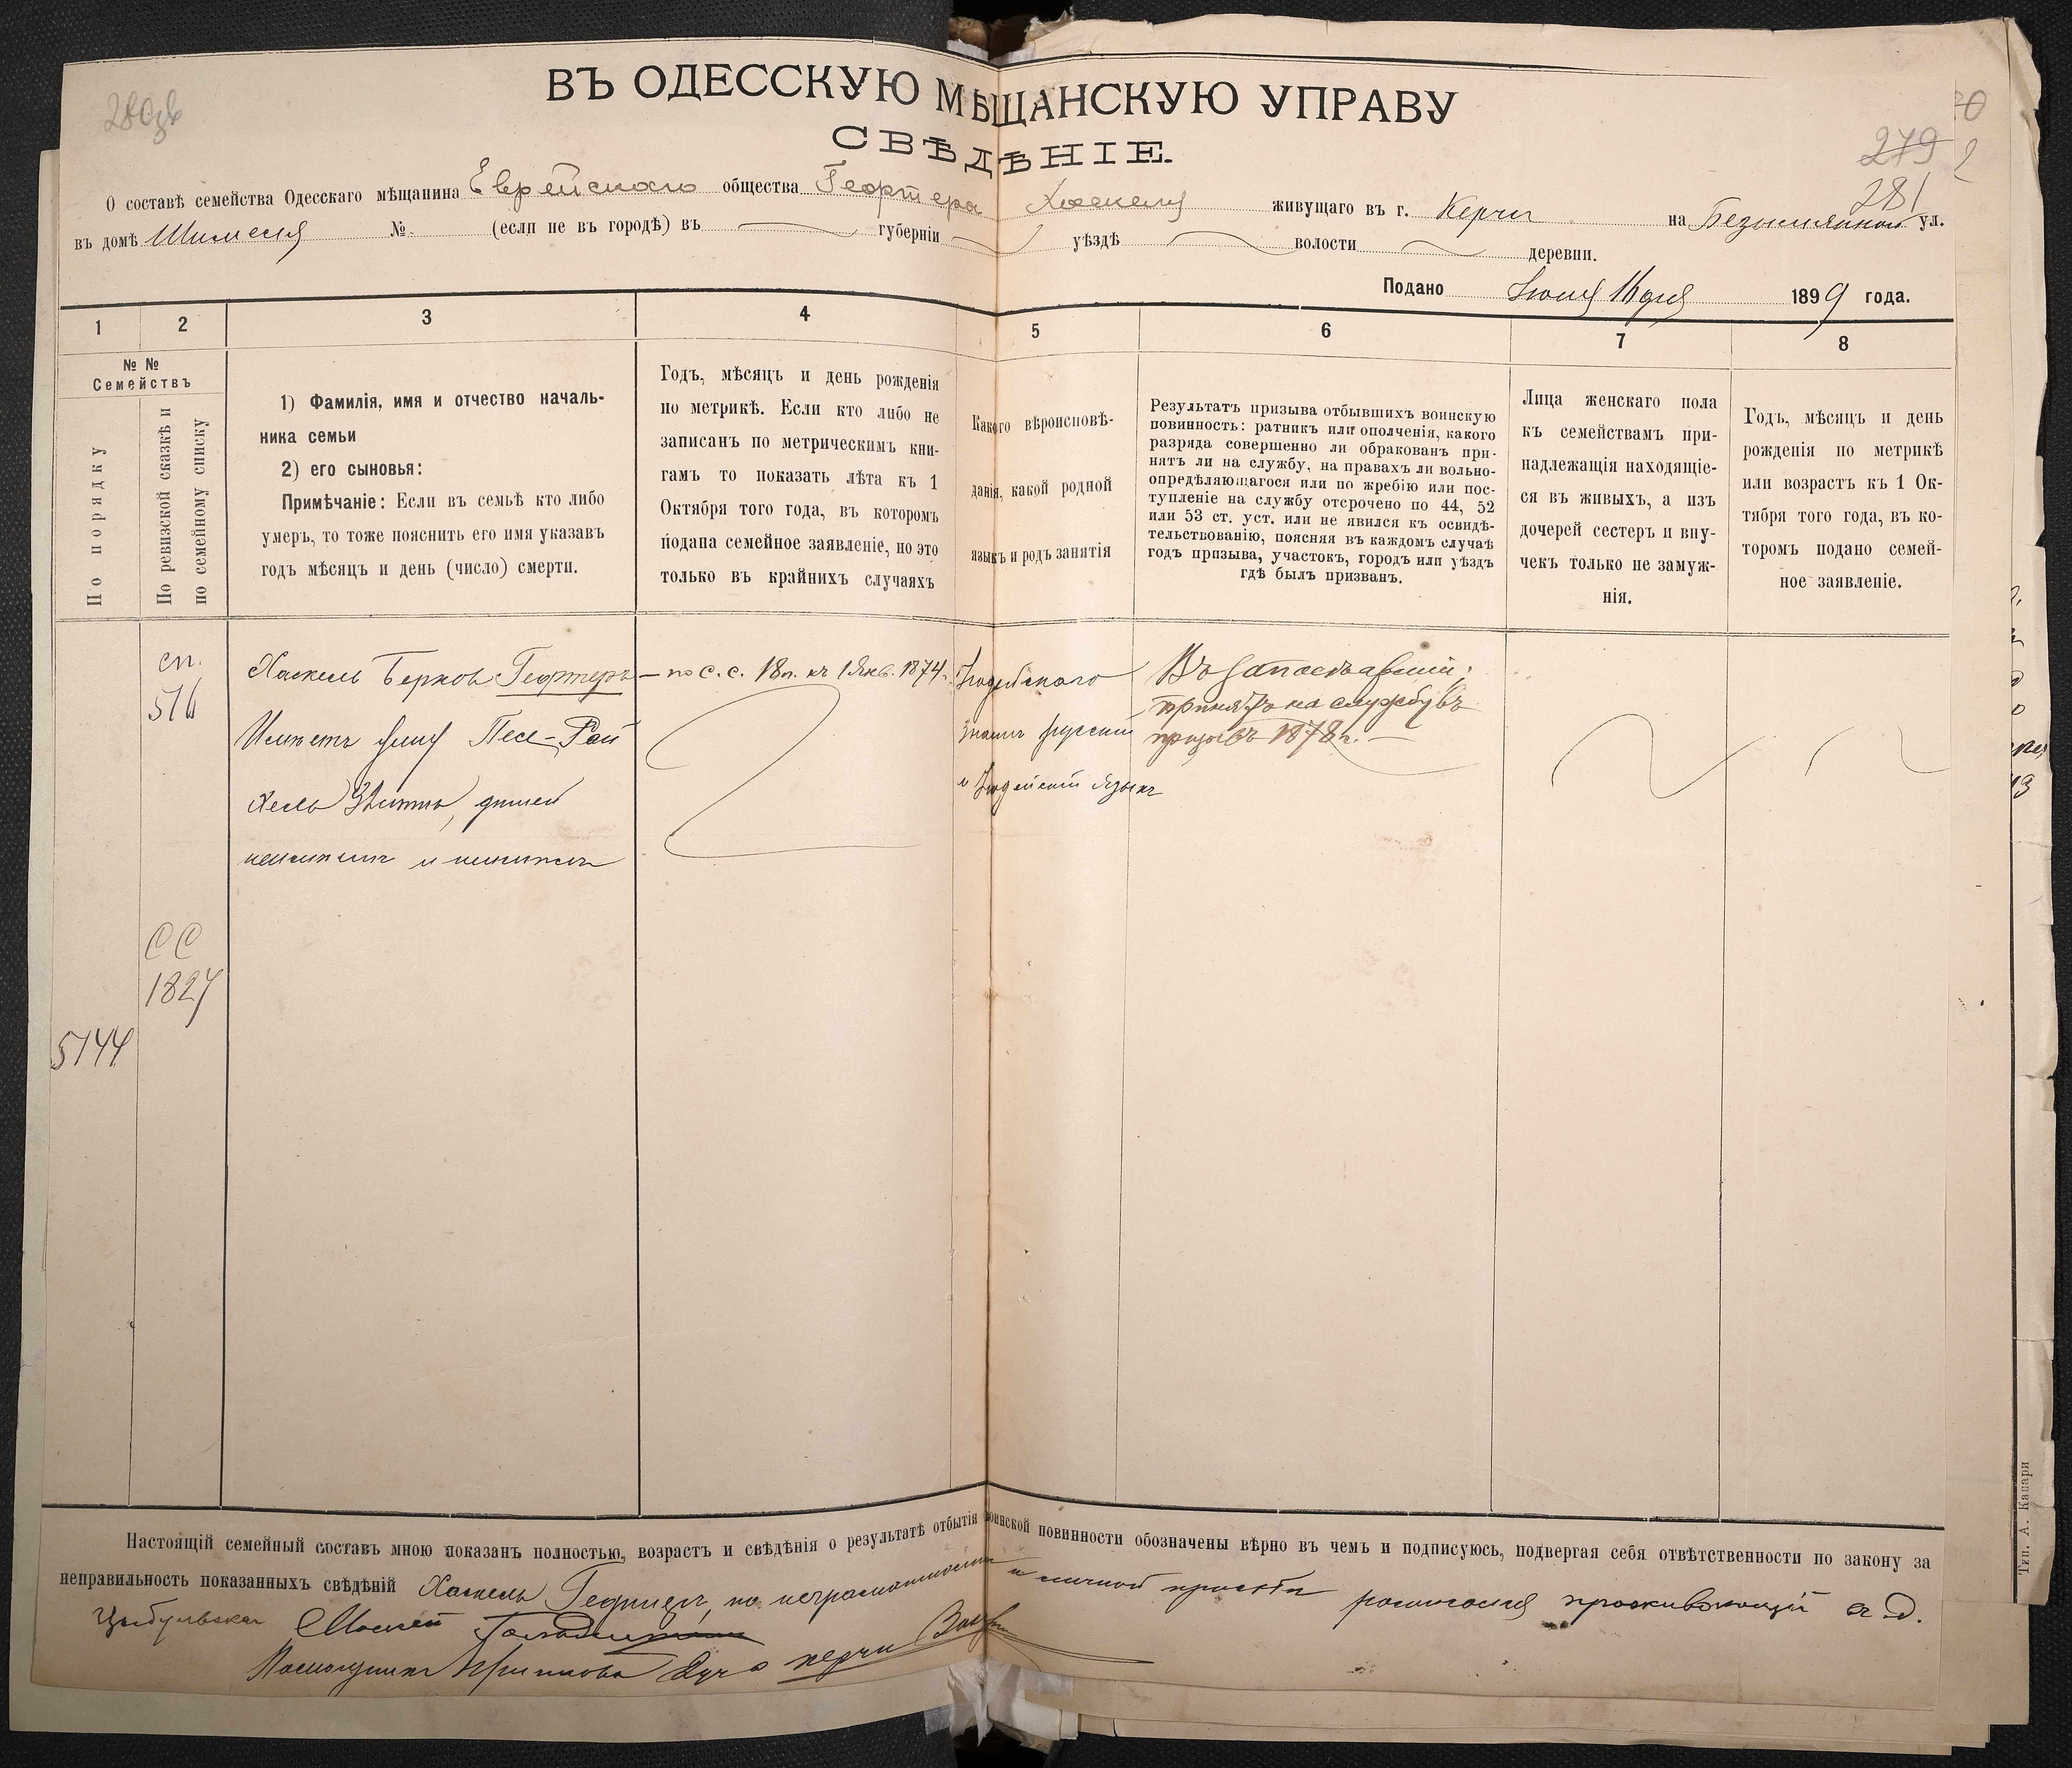 280
279
281
ВЪ ОДЕССКУЮ МѢЩАНСКУЮ УПРАВУ
СВѢДѢНІЕ.
О составѣ семейства Одесскаго мѣщанина Еврейскаго общества Хаскеля живущаго въ г. Керчи на ул.
въ домѣ № (если не въ городѣ) въ губерніи уѣздѣ волости деревни.
Подано 1899 года.
1
2
3
4
5
6
7
8
№ №
Семействъ
По порядку
По ревизской сказкѣ и
по семейному списку
1) Фамилія, имя и отчество началь-
ника семьи
2) его сыновья:
Примѣчаніе: Если въ семьѣ кто либо
умеръ, то тоже пояснить его имя указавъ
годъ мѣсяцъ и день (число) смерти.
Годъ, мѣсяцъ и день рожденія
по метрикѣ. Если кто либо не
записанъ по метрическимъ кни-
гамъ то показать лѣта къ 1
Октября того года, въ которомъ
подана семейное заявленіе, но это
только въ крайнихъ случаяхъ
Какого вѣроисповѣ-
данія, какой родной
языкъ и родъ занятія
Результатъ призыва отбывшихъ воинскую
повинность: ратникъ или ополченія, какого
разряда совершенно ли обракованъ при-
нятъ ли на службу, на правахъ ли вольно-
опредѣляющагося или по жребію или пос-
тупленіе на службу отсрочено по 44, 52
или 53 ст. уст. или не явился къ освидѣ-
тельствованію, поясняя въ каждомъ случаѣ
годъ призыва, участокъ, городъ или уѣздъ
гдѣ былъ призванъ.
Лица женскаго пола
къ семействамъ при-
надлежащія находящіе-
ся въ живыхъ, а изъ
дочерей сестеръ и вну-
чекъ только не замуж-
нія.
Годъ, мѣсяцъ и день
рожденія по метрикѣ
или возрастъ къ 1 Ок-
тября того года, въ ко-
торомъ подано семей-
ное заявленіе.
сп.
516
Хаскель Берков
Имѣетъ жену Песе-Рай
дѣтей
— по с. с. 18 л. къ 1 Янв. 1874.
Іюдейскаго
русскій
и Іюдейскій языкъ
принятъ на службу въ
призывъ 1878 г. —
СС
1827
5144
Настоящій семейный составъ мною показанъ полностью, возрастъ и свѣдѣнія о результатѣ отбытія воинской повинности обозначены вѣрно въ чемъ и подписуюсь, подвергая себя отвѣтственности по закону за
неправильность показанныхъ свѣдѣній Хаскель по неграмотности и личной просьбѣ проживающій въ д.
Моисей
Тип. А. Капари